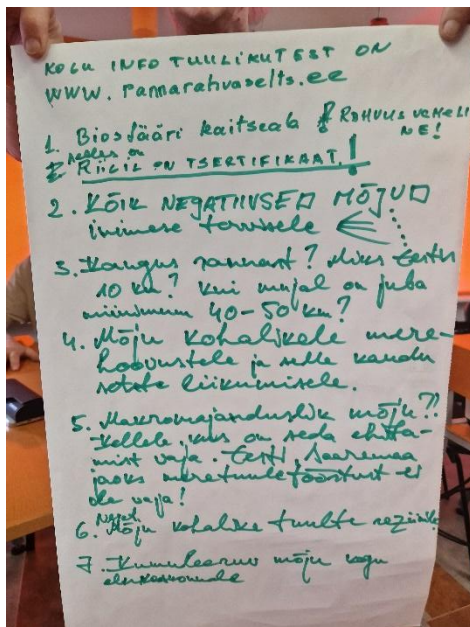 KOGU INFO TUULIKUTEST ON
WWW.rannarahvaselts.ee
1. Biosfääri kaitseala ! RAHVUSVAHELI
NE!
selles on
RIIGIL ON TSERTIFIKAAT!
2. KÕIK NEGATIIVSED MÕJUD
inimese tervisele
3. Kaugus rannast? Miks Eestis
10 km? kui mujal on juba
miinimum 40-50 km?
4. Mõju kohalikele mere-
hoovustele ja selle kaudu
setete liikumisele.
5. Makromajanduslik mõju?!
Kellele, kus on seda ehita-
mist vaja. Eesti, Saaremaa
jaoks meretuuletööstust ei
ole vaja!
Negat.
6. Mõju kohalike tuulte režiimile
7. Kumuleeruv mõju kogu
elukeskkonnale